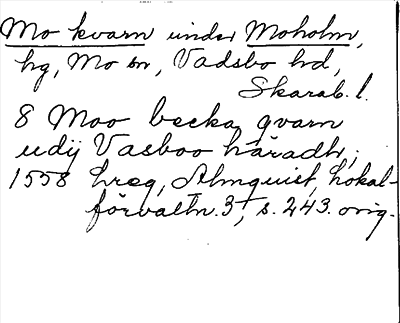 Mo kvarn under Moholm,
hg, Mo sn, Vadsbo hd,
Skarab. l.
8 Moo becka qvarn
udij Vasboo häradh,
1558 hreg, Almquist, Lokal-
förvaltn. 3, s. 243. orig.